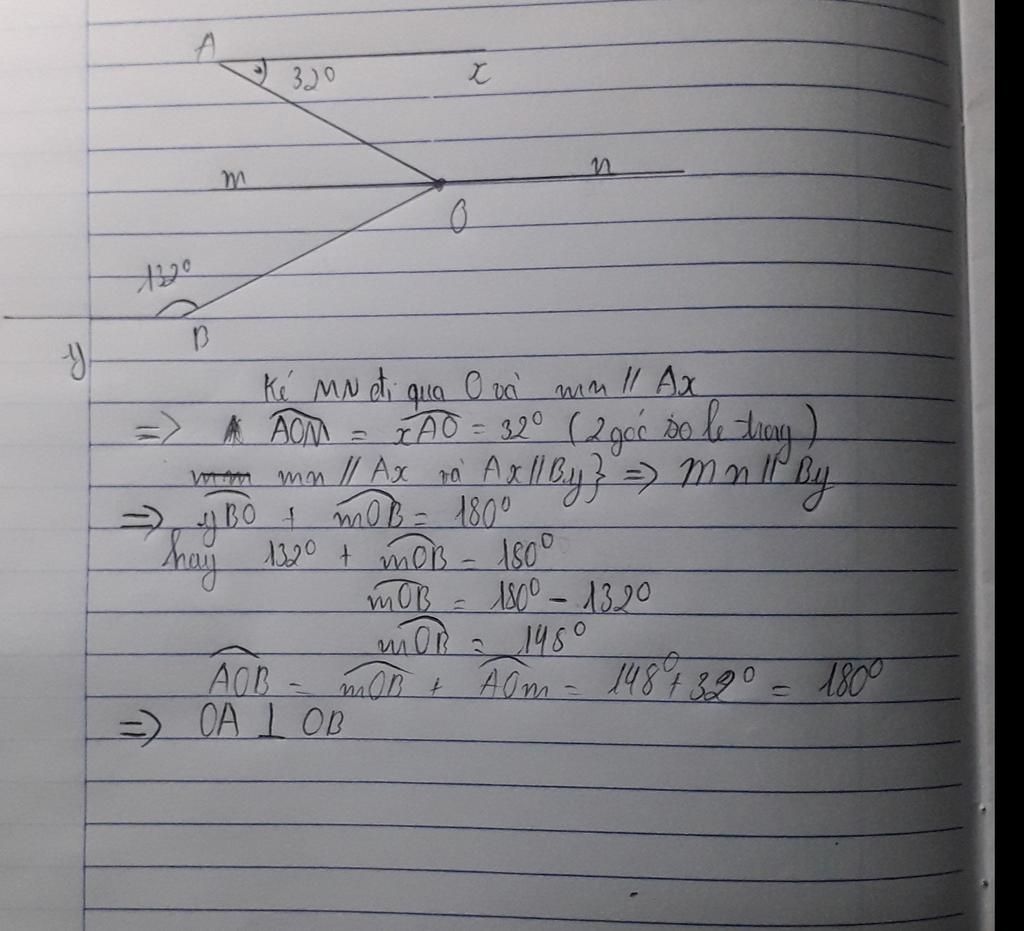 A
32°
x
m
n
O
132°
B
y
Kẻ MN đi qua O và mn // Ax
=> AOM = xAO = 32° (2 góc so le trong)
mn // Ax và Ax // By} => mn // By
=> yBO + mOB = 180°
hay 132° + mOB = 180°
mOB = 180° - 132°
mOB = 148°
AOB = mOB + AOm = 148° + 32° = 180°
=> OA ⊥ OB